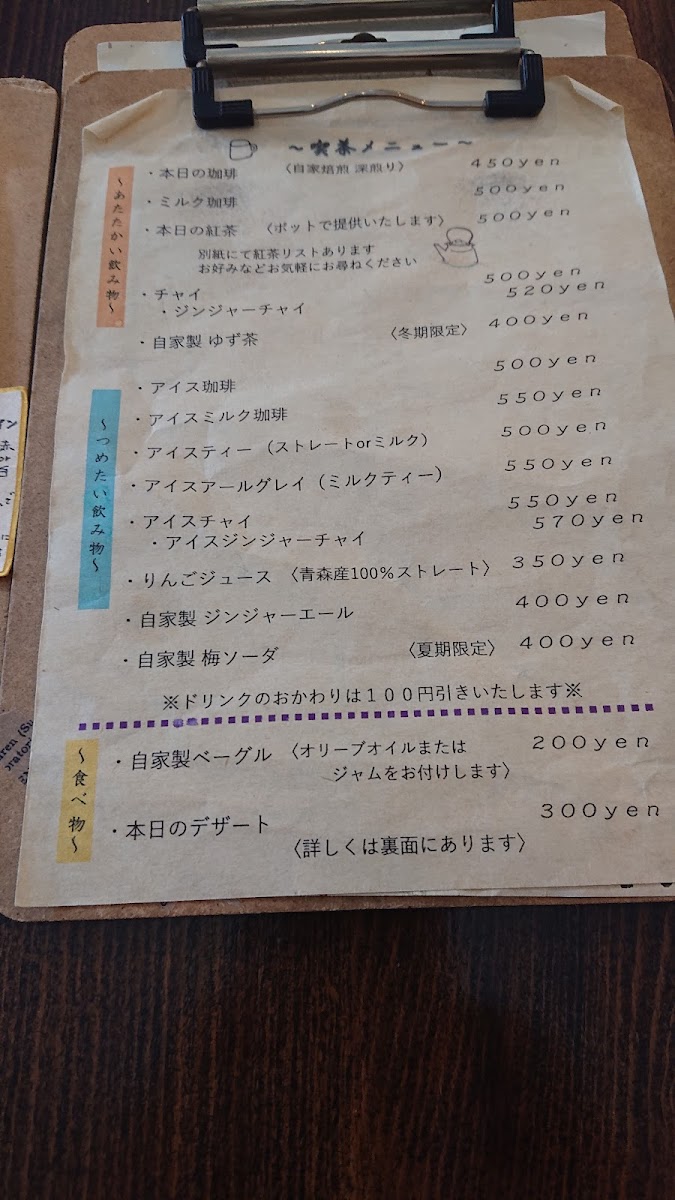 ～喫茶メニュー～
～あたたかい飲み物～
・本日の珈琲 〈自家焙煎 深煎り〉 450yen
・ミルク珈琲 500yen
・本日の紅茶 〈ポットで提供いたします〉 500yen
別紙にて紅茶リストあります
お好みなどお気軽にお尋ねください
・チャイ 500yen
・ジンジャーチャイ 520yen
・自家製 ゆず茶 〈冬期限定〉 400yen
～つめたい飲み物～
・アイス珈琲 500yen
・アイスミルク珈琲 550yen
・アイスティー （ストレートorミルク） 500yen
・アイスアールグレイ（ミルクティー） 550yen
・アイスチャイ 550yen
・アイスジンジャーチャイ 570yen
・りんごジュース 〈青森産100%ストレート〉 350yen
・自家製 ジンジャーエール 400yen
・自家製 梅ソーダ 〈夏期限定〉 400yen
※ドリンクのおかわりは１００円引きいたします※
～食べ物～
・自家製ベーグル 〈オリーブオイルまたは 200yen
ジャムをお付けします〉
・本日のデザート 300yen
〈詳しくは裏面にあります〉